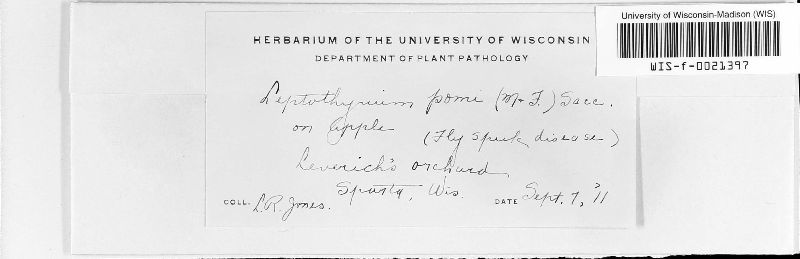 University of Wisconsin-Madison (WIS)
WIS-f-0021397
HERBARIUM OF THE UNIVERSITY OF WISCONSIN
DEPARTMENT OF PLANT PATHOLOGY
Leptothyrium pomi (M+F.) Sacc.
on Apple (Fly speck disease)
Leverich's orchard,
Sparta, Wis.
COLL. L.R. Jones. DATE Sept. 7, '11